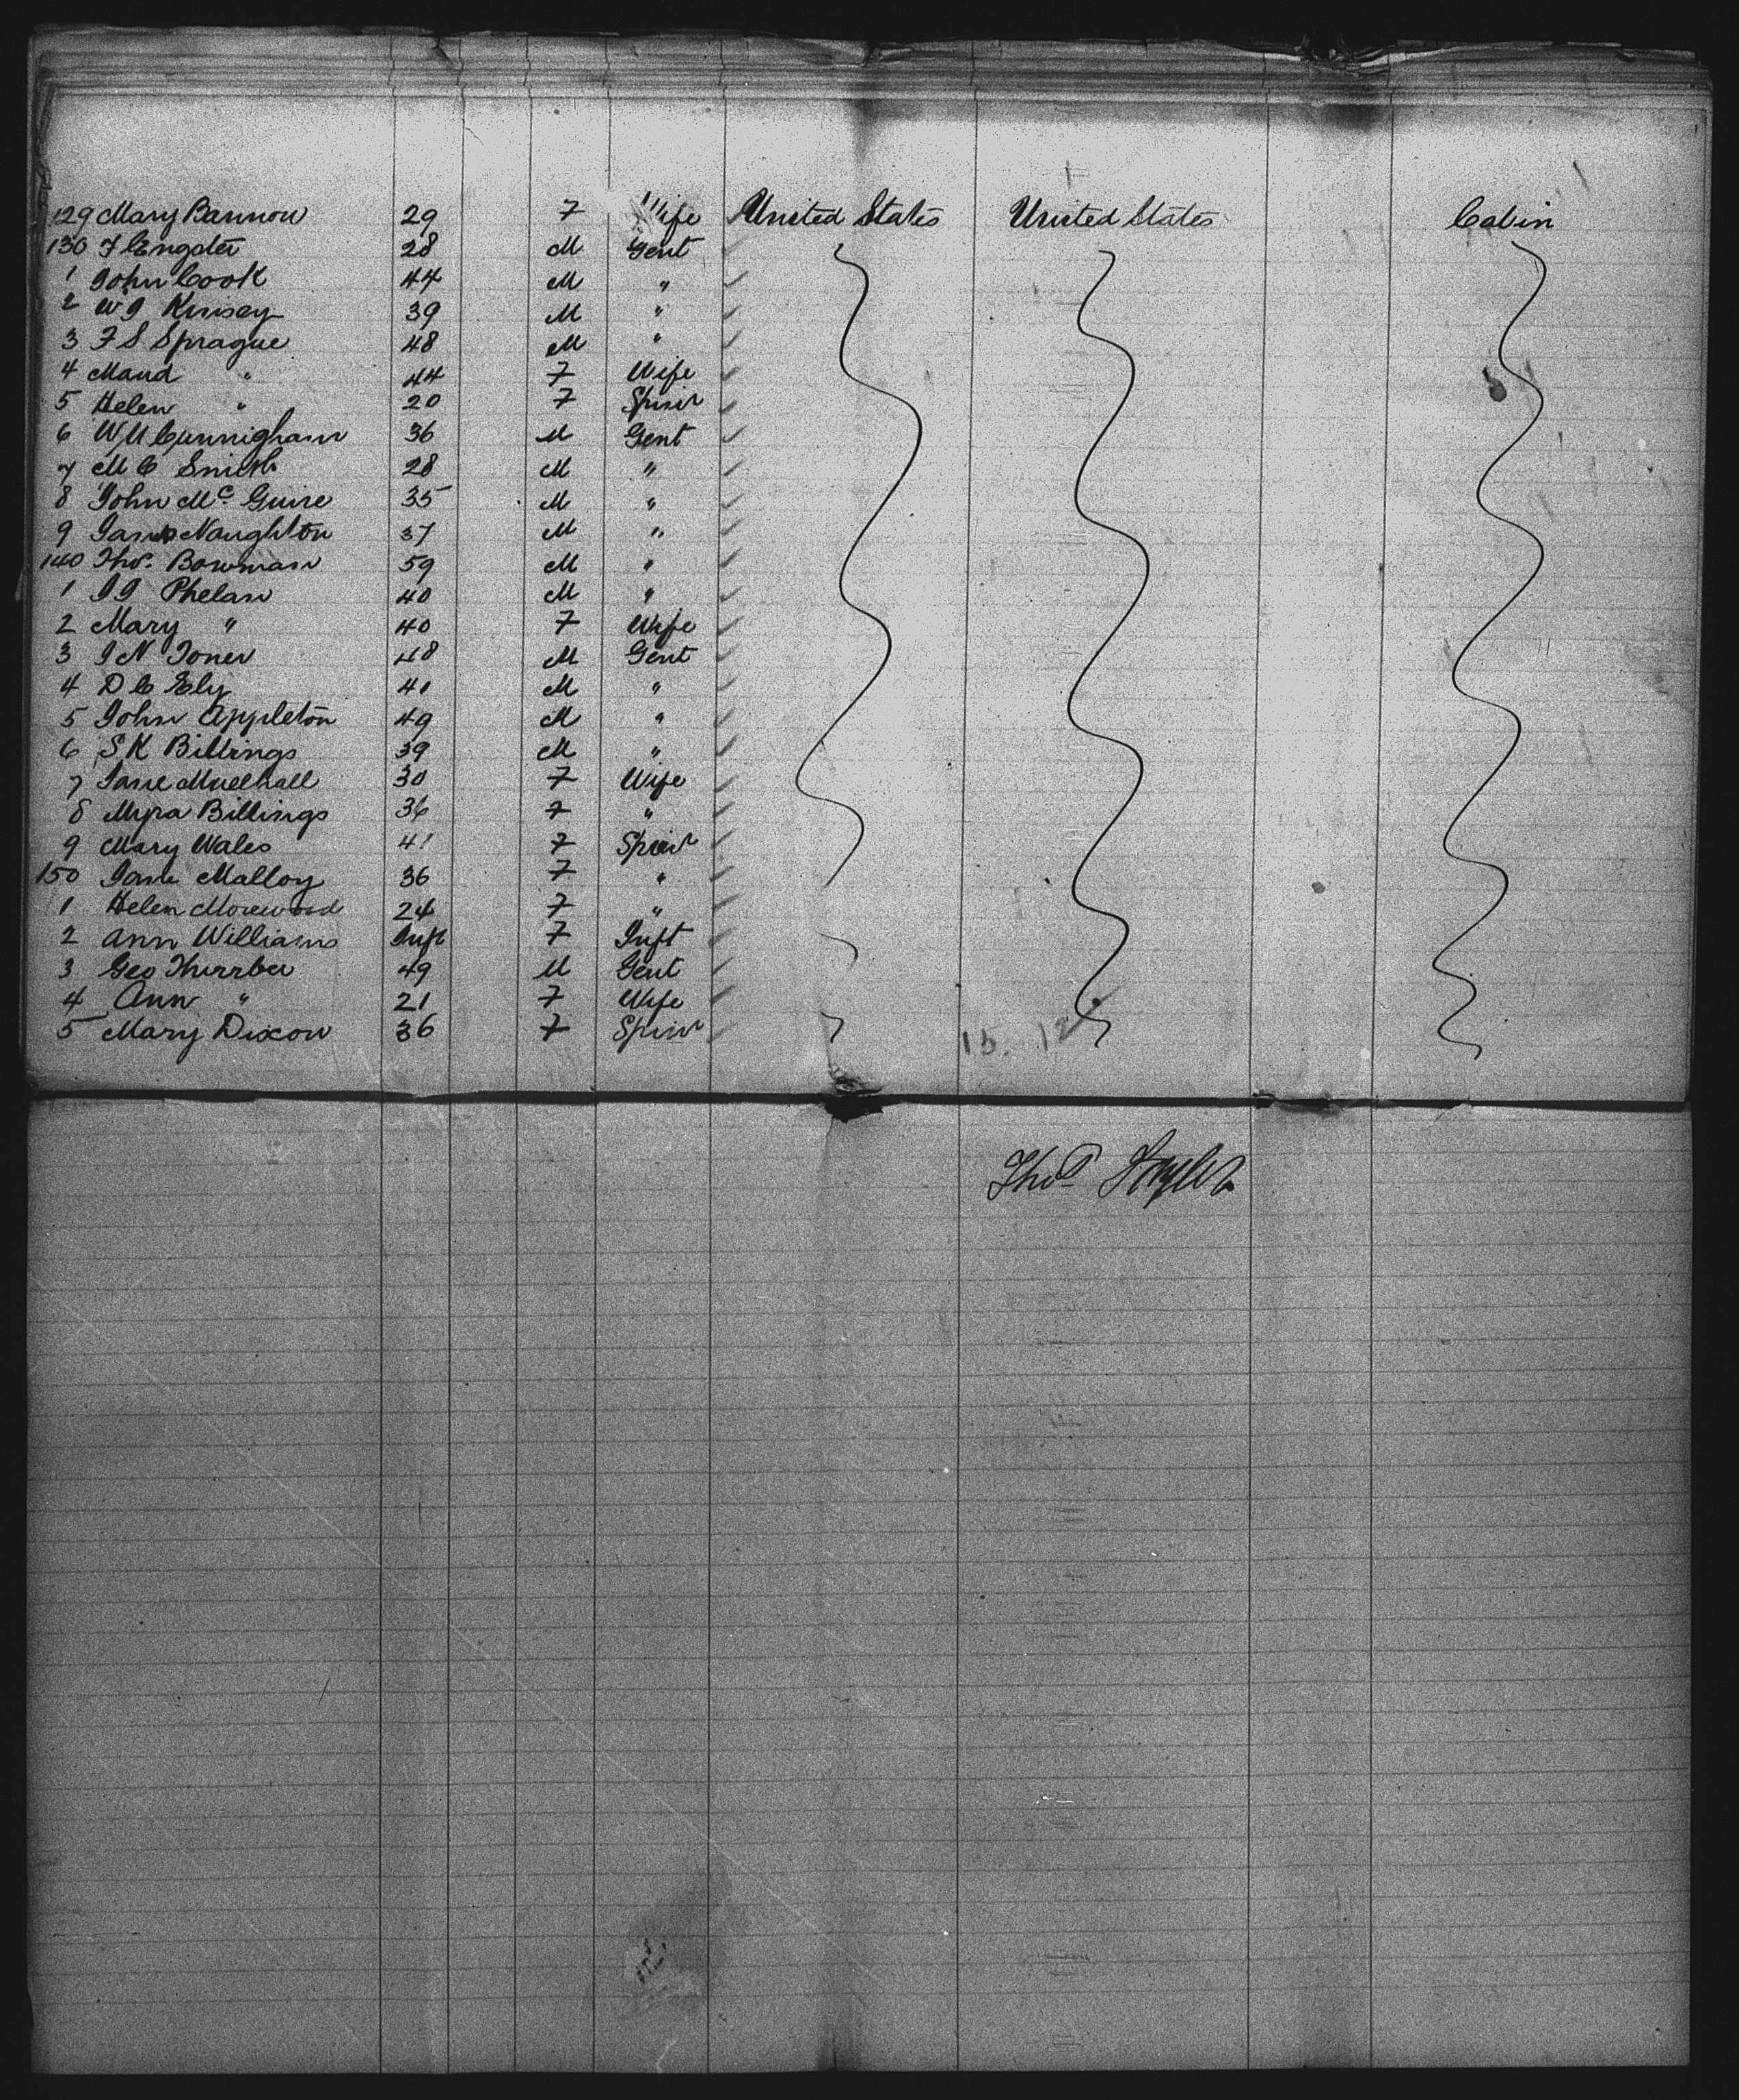 129 Mary Bannon 29 F Wife United States United States Cabin
130 F Engster 28 M Gent
1 John Cook 44 M "
2 W J Kinsey 39 M "
3 F S Sprague 48 M "
4 Maud " 44 F Wife
5 Helen " 20 F Spinr
6 W H Cunnigham 36 M Gent
7 M C Smith 28 M "
8 John Mc Guire 35 M "
9 James Naughton 37 M "
140 Thos. Bowman 59 M "
1 J J Phelan 40 M "
2 Mary " 40 F Wife
3 J N Toner 48 M Gent
4 D C Ely 41 M "
5 John Appleton 49 M "
6 S K Billings 39 M "
7 Jane Muelhall 30 F Wife
8 Myra Billings 36 F "
9 Mary Wales 41 F Spinr
150 Jane Malloy 36 F "
1 Helen Morewood 24 F "
2 Ann Williams Inft F Inft
3 Geo Thurber 49 M Gent
4 Ann " 21 F Wife
5 Mary Dixon 36 F Spinr
Thos